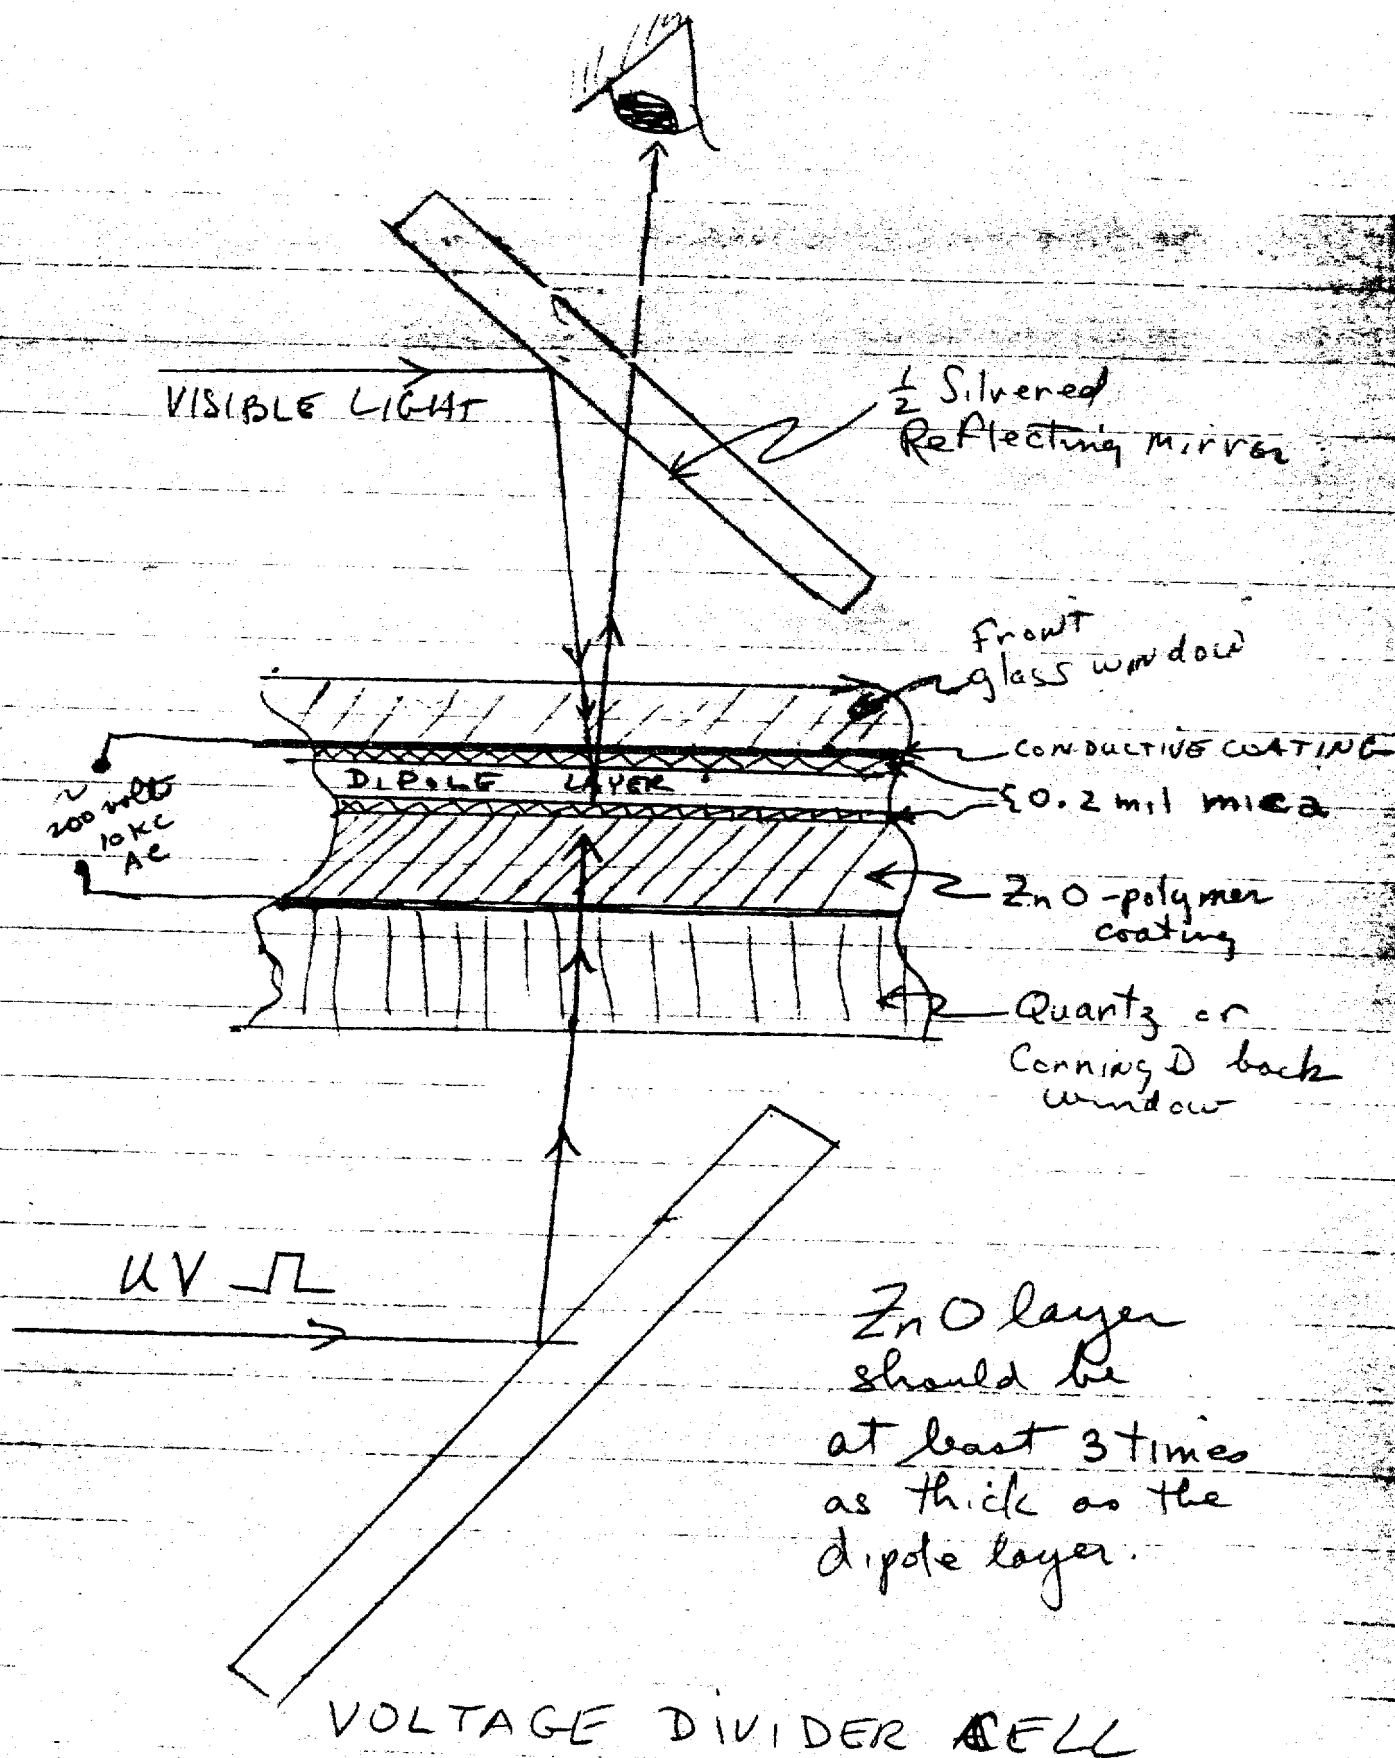 VISIBLE LIGHT
1/2 Silvered
Reflecting mirror
Front
glass window
CONDUCTIVE COATING
DIPOLE LAYER
0.2 mil mica
~
200 volts
10 KC
AC
ZnO-polymer
coating
Quartz or
Corning D back
window
UV
ZnO layer
should be
at least 3 times
as thick as the
dipole layer.
VOLTAGE DIVIDER CELL